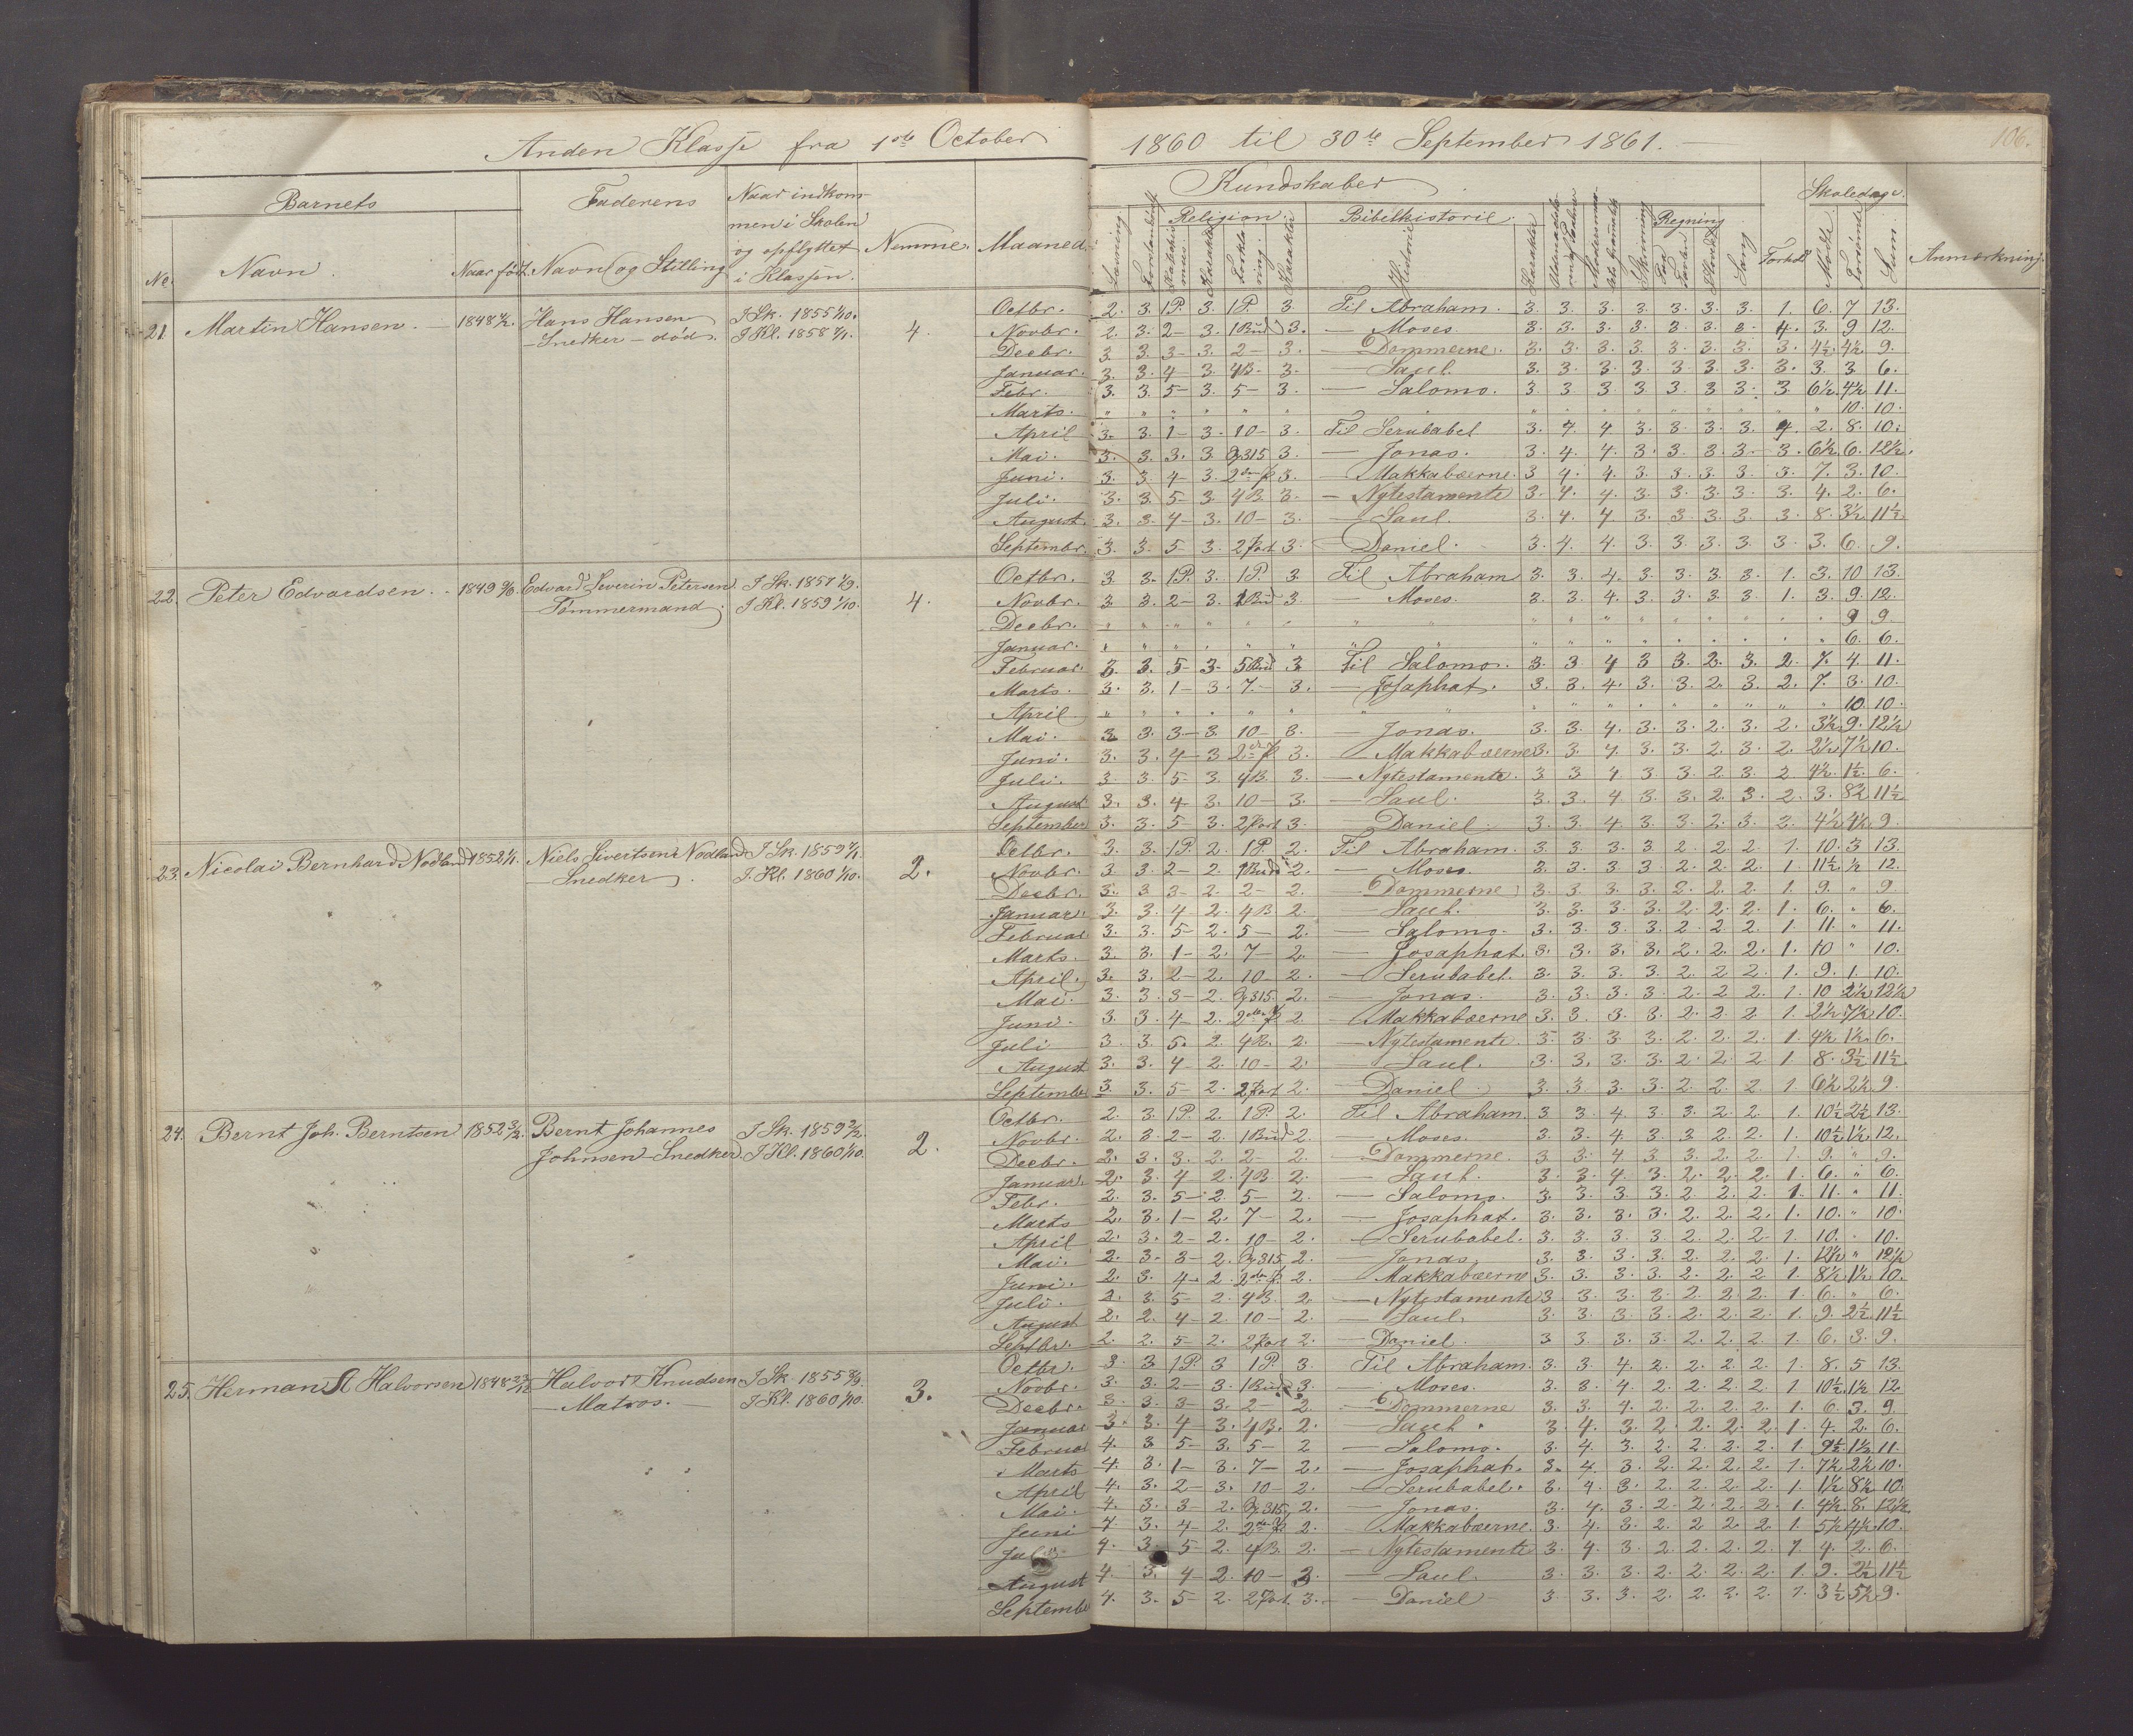 Anden Klasse fra 1ste October 1860 til 30te September 1861.
106.
Barnets
Faderens
Naar indkom-
men i Skolen
og opflyttet
i Klassen.
Nemme.
Maaned.
No.
Navn.
Naar født
Navn og Stilling
Kundskaber
Religion.
Bibelhistorie.
Regning
Skoledage.
Læsning
Karakter
Historie
Karakter
Skrivning
Sang
Forhold
Mødte
Forsømte
Sum
Anmærkning.
21. Martin Hansen. 1848 Hans Hansen I Sk. 1855 1/10. 4.
Snedker – død. I Kl. 1858
Octbr. 2. 3. 1P. 3. 1P. 3. Til Abraham. 3. 3. 3. 3. 3. 3. 3. 1. 6. 7 13.
Novbr. 2. 3. 2– 3. 1Bud 3. – Moses. 3. 3. 3. 3. 3. 3. 3. 4. 3. 9 12.
Decbr. 3. 3. 3– 3. 2– 3. – Dommerne. 3. 3. 3. 3. 3. 3. 3. 3. 4½. 4½ 9.
Januar. 3. 3. 4– 3. 4B. 3. – Saul. 3. 3. 3. 3. 3. 3. 3. 3. 3. 3 6.
Febr. 3. 3. 5– 3. 5– 3. – Salomo. 3. 3. 3. 3. 3. 3. 3. 3. 6½. 4½ 11.
Marts. " " " " " " " " " " " " " " " 10. 10.
April 3. 3. 1– 3. 10– 3. Til Serubabel 3. 4. 4. 3. 3. 3. 3. 4. 2. 8. 10.
Mai. 3. 3. 3. 3. 315 3. – Jonas. 3. 4. 4. 3. 3. 3. 3. 3. 6½. 6. 12½.
Juni. 3. 3. 4– 3. 2den 3. – Makkabæerne. 3 4. 4. 3. 3. 3. 3. 3. 7. 3. 10.
Juli. 3. 3. 5– 3. 4B. 3. – Nytestamente 3. 4. 4. 3. 3. 3. 3. 3. 4. 2. 6.
August. 3. 3. 4– 3. 10– 3. – Saul. 3. 4. 4. 3. 3. 3. 3. 3. 8. 3½. 11½.
Septembr. 3. 3. 5– 3. 2Part 3. – Daniel. 3. 4. 4. 3. 3. 3. 3. 3. 3. 6. 9.
22. Peter Edvardsen. 1849 Edvard Severin Petersen I Sk. 1857 4.
Tømmermand. I Kl. 1859 1/10.
Octbr. 3. 3. 1P. 3. 1P. 3. Til Abraham 3. 3. 4. 3. 3. 3. 3. 1. 3. 10 13.
Novbr. 3. 3. 2– 3. 1Bud 3. – Moses. 3. 3. 4. 3. 3. 3. 3. 1. 3. 9. 12.
Decbr. " " " " " " " " " " " " " " " 9 9.
Januar. " " " " " " " " " " " " " " " 6. 6.
Februar. 3. 3. 5– 3– 5Bud 3. Til Salomo. 3. 3. 4 3 3. 2. 3. 2. 7. 4. 11.
Marts. 3. 3. 1– 3. 7.– 3. – Josaphat. 3. 3. 4. 3. 3. 2. 3. 2. 7. 3. 10.
April " " " " " " " " " " " " " " " 10. 10.
Mai. 3. 3. 3– 3. 10– 3. – Jonas. 3. 3. 4. 3. 3. 2. 3. 2. 3½. 9. 12½
Juni. 3. 3. 4– 3 2den 3. – Makkabæerne 3. 3. 4. 3. 3. 2. 3. 2. 2½. 7½ 10.
Juli. 3. 3. 5– 3. 4B. 3. – Nytestamente. 3 3 4. 3. 3. 2. 3. 2 4½. 1½. 6.
August 3. 3. 4– 3. 10– 3. – Saul. 3. 3. 4. 3. 3. 2. 3. 2. 3. 8½ 11½
September 3. 3. 5– 3. 2Part 3. – Daniel. 3. 3. 4. 3. 3. 2. 3. 2. 4½. 4½. 9.
23. Nicolai Bernhard Nodland 1852 Niels Sivertsen Nodland I Sk. 1859 2.
Snedker I Kl. 1860 1/10.
Octbr. 3. 3. 1P. 2. 1P. 2. Til Abraham. 3. 3. 3. 3. 2. 2. 2. 1. 10. 3. 13.
Novbr. 3 3. 2– 2. 1Bud 2. – Moses. 3. 3. 3. 3 2. 2. 2. 1. 11½. ½ 12.
Decbr. 3. 3 3– 2. 2– 2. – Dommerne 3. 3. 3. 3. 2. 2. 2. 1. 9. " 9.
Januar. 3. 3. 4– 2. 4B 2. – Saul. 3. 3. 3. 3. 2. 2. 2. 1. 6. " 6.
Februar 3. 3. 5– 2. 5– 2. – Salomo. 3. 3. 3. 3. 2. 2. 2. 1. 11. " 11.
Marts. 3. 3. 1– 2. 7– 2. – Josaphat 3. 3. 3. 3. 2. 2. 2. 1. 10 " 10.
April. 3. 3. 2– 2. 10– 2. – Serubabel. 3. 3. 3. 3. 2. 2. 2. 1. 9. 1. 10.
Mai. 3. 3. 3– 2. 315. 2. – Jonas. 3. 3. 3. 3. 2. 2. 2. 1. 10 2½ 12½
Juni. 3. 3. 4– 2. 2den 2. – Makkabæerne 3. 3. 3. 3. 2. 2. 2. 1. 2½. 7½ 10.
Juli 3. 3. 5. 2. 4B. 2. – Nytestamente. 3. 3. 3 3. 2. 2. 2. 1. 4½ 1½. 6.
August 3. 3. 4 2. 10– 2. – Saul. 3. 3. 3. 3. 2. 2. 2. 1. 8. 3½ 11½
September 3. 3. 5– 2. 2Part 2. – Daniel. 3. 3. 3. 3. 2. 2. 2. 1. 6½ 2½. 9.
24. Bernt Joh. Berntsen 1852 Bernt Johannes I Sk. 1859 2.
Johnsen – Snedker. I Kl. 1860 1/10.
Octbr. 2. 3. 1P. 2. 1P. 2. Til Abraham. 3. 3. 4. 3. 3. 2. 2. 1. 10½ 2½ 13.
Novbr. 2. 3. 2– 2. 1Bud 2. – Moses. 3. 3. 4. 3. 3. 2. 2. 1. 10½ 1½ 12.
Decbr. 2. 3. 3. 2. 2– 2. – Dommerne. 3. 3. 4. 3. 3. 2. 2. 1. 9. " 9.
Januar. 2. 3. 4 2. 4B 2. – Saul. 3. 3. 4. 3. 2. 2. 2. 1. 6. " 6.
Febr. 2. 3. 5– 2. 5– 2. – Salomo. 3. 3. 3. 3. 2. 2. 2. 1. 11. " 11.
Marts 2. 3. 1– 2. 7– 2. – Josaphat. 3. 3. 3. 3. 2. 2. 2. 1. 10. " 10.
April 2. 3. 2– 2. 10– 2. – Serubabel. 3. 3. 3. 3. 2. 2. 2. 1. 10. " 10.
Mai. 2. 3. 3– 2. 315 2. – Jonas. 3. 3. 3. 3. 2. 2. 2. 1. 12½ " 12½
Juni. 2. 3. 4– 2. 2den 2. – Makkabæerne 3. 3. 3. 3. 2. 2. 2 1. 8½ 1½. 10.
Juli. 2. 3. 5– 2. 4B. 2. – Nytestamente 3 3. 3. 3. 2. 2. 2. 1. 6. " 6.
August 2. 2. 4– 2. 10– 2. – Saul. 3. 3. 3. 3. 2. 2. 2. 1. 9. 2½ 11½
Septbr. 2. 2. 5– 2. 2Part 2. – Daniel. 3 3 3. 3. 2. 2. 2. 1. 6. 3. 9.
25. Herman A Halvorsen 1848 Halvor Knudsen I Sk. 1855 3.
– Matros. – I Kl. 1860 1/10.
Octbr. 3. 3 1P. 3 1P. 3. Til Abraham. 3. 3. 4. 2. 2. 2. 2. 1. 8. 5 13.
Novbr. 3. 3. 2– 3. 1Bud 3. – Moses. 3. 3. 4. 2. 2. 2. 2. 1 10½ 1½ 12.
Decbr. 3. 3. 3– 3. 2– 2. – Dommerne 3. 3. 4. 2. 2. 2. 2. 1. 6. 3. 9.
Januar 3. 3. 4– 3. 4B. 2. – Saul. 3. 4. 3. 2. 2. 2. 2. 1 4. 2. 6.
Februar 4. 3 5– 3. 5– 2 – Salomo. 3. 4. 3. 2. 2. 2. 2. 1. 9½ 1½. 11.
Marts 4. 3. 1– 3. 7– 2. – Josaphat. 3. 4. 3. 2. 2. 2. 2. 1. 7½ 2½ 10.
April 4. 3. 2– 3. 10– 2. – Serubabel. 3. 4. 3. 2. 2. 2. 2. 1. 1½ 8½ 10.
Mai. 4. 3. 3– 2. 315 2. – Jonas. 3. 4. 3. 2. 2. 2. 2. 1. 4½. 8. 12½
Juni 4. 3. 4– 2. 2den 2. – Makkabæerne. 3. 4. 3. 2. 2 2. 2. 1. 5½ 4½ 10.
Juli 4. 3. 5– 2. 4B. 2. – Nytestamente 3. 4. 3. 2. 2. 2. 2. 1 4. 2. 6.
August 4. 3. 4– 2. 10– 3. – Saul. 3. 3. 3. 2. 2. 2. 2. 1. 9. 2½ 11½
September 4. 3. 5– 2. 2Part. 3. – Daniel 3. 3. 3. 2. 2. 2. 2. 1. 3½ 5½ 9.